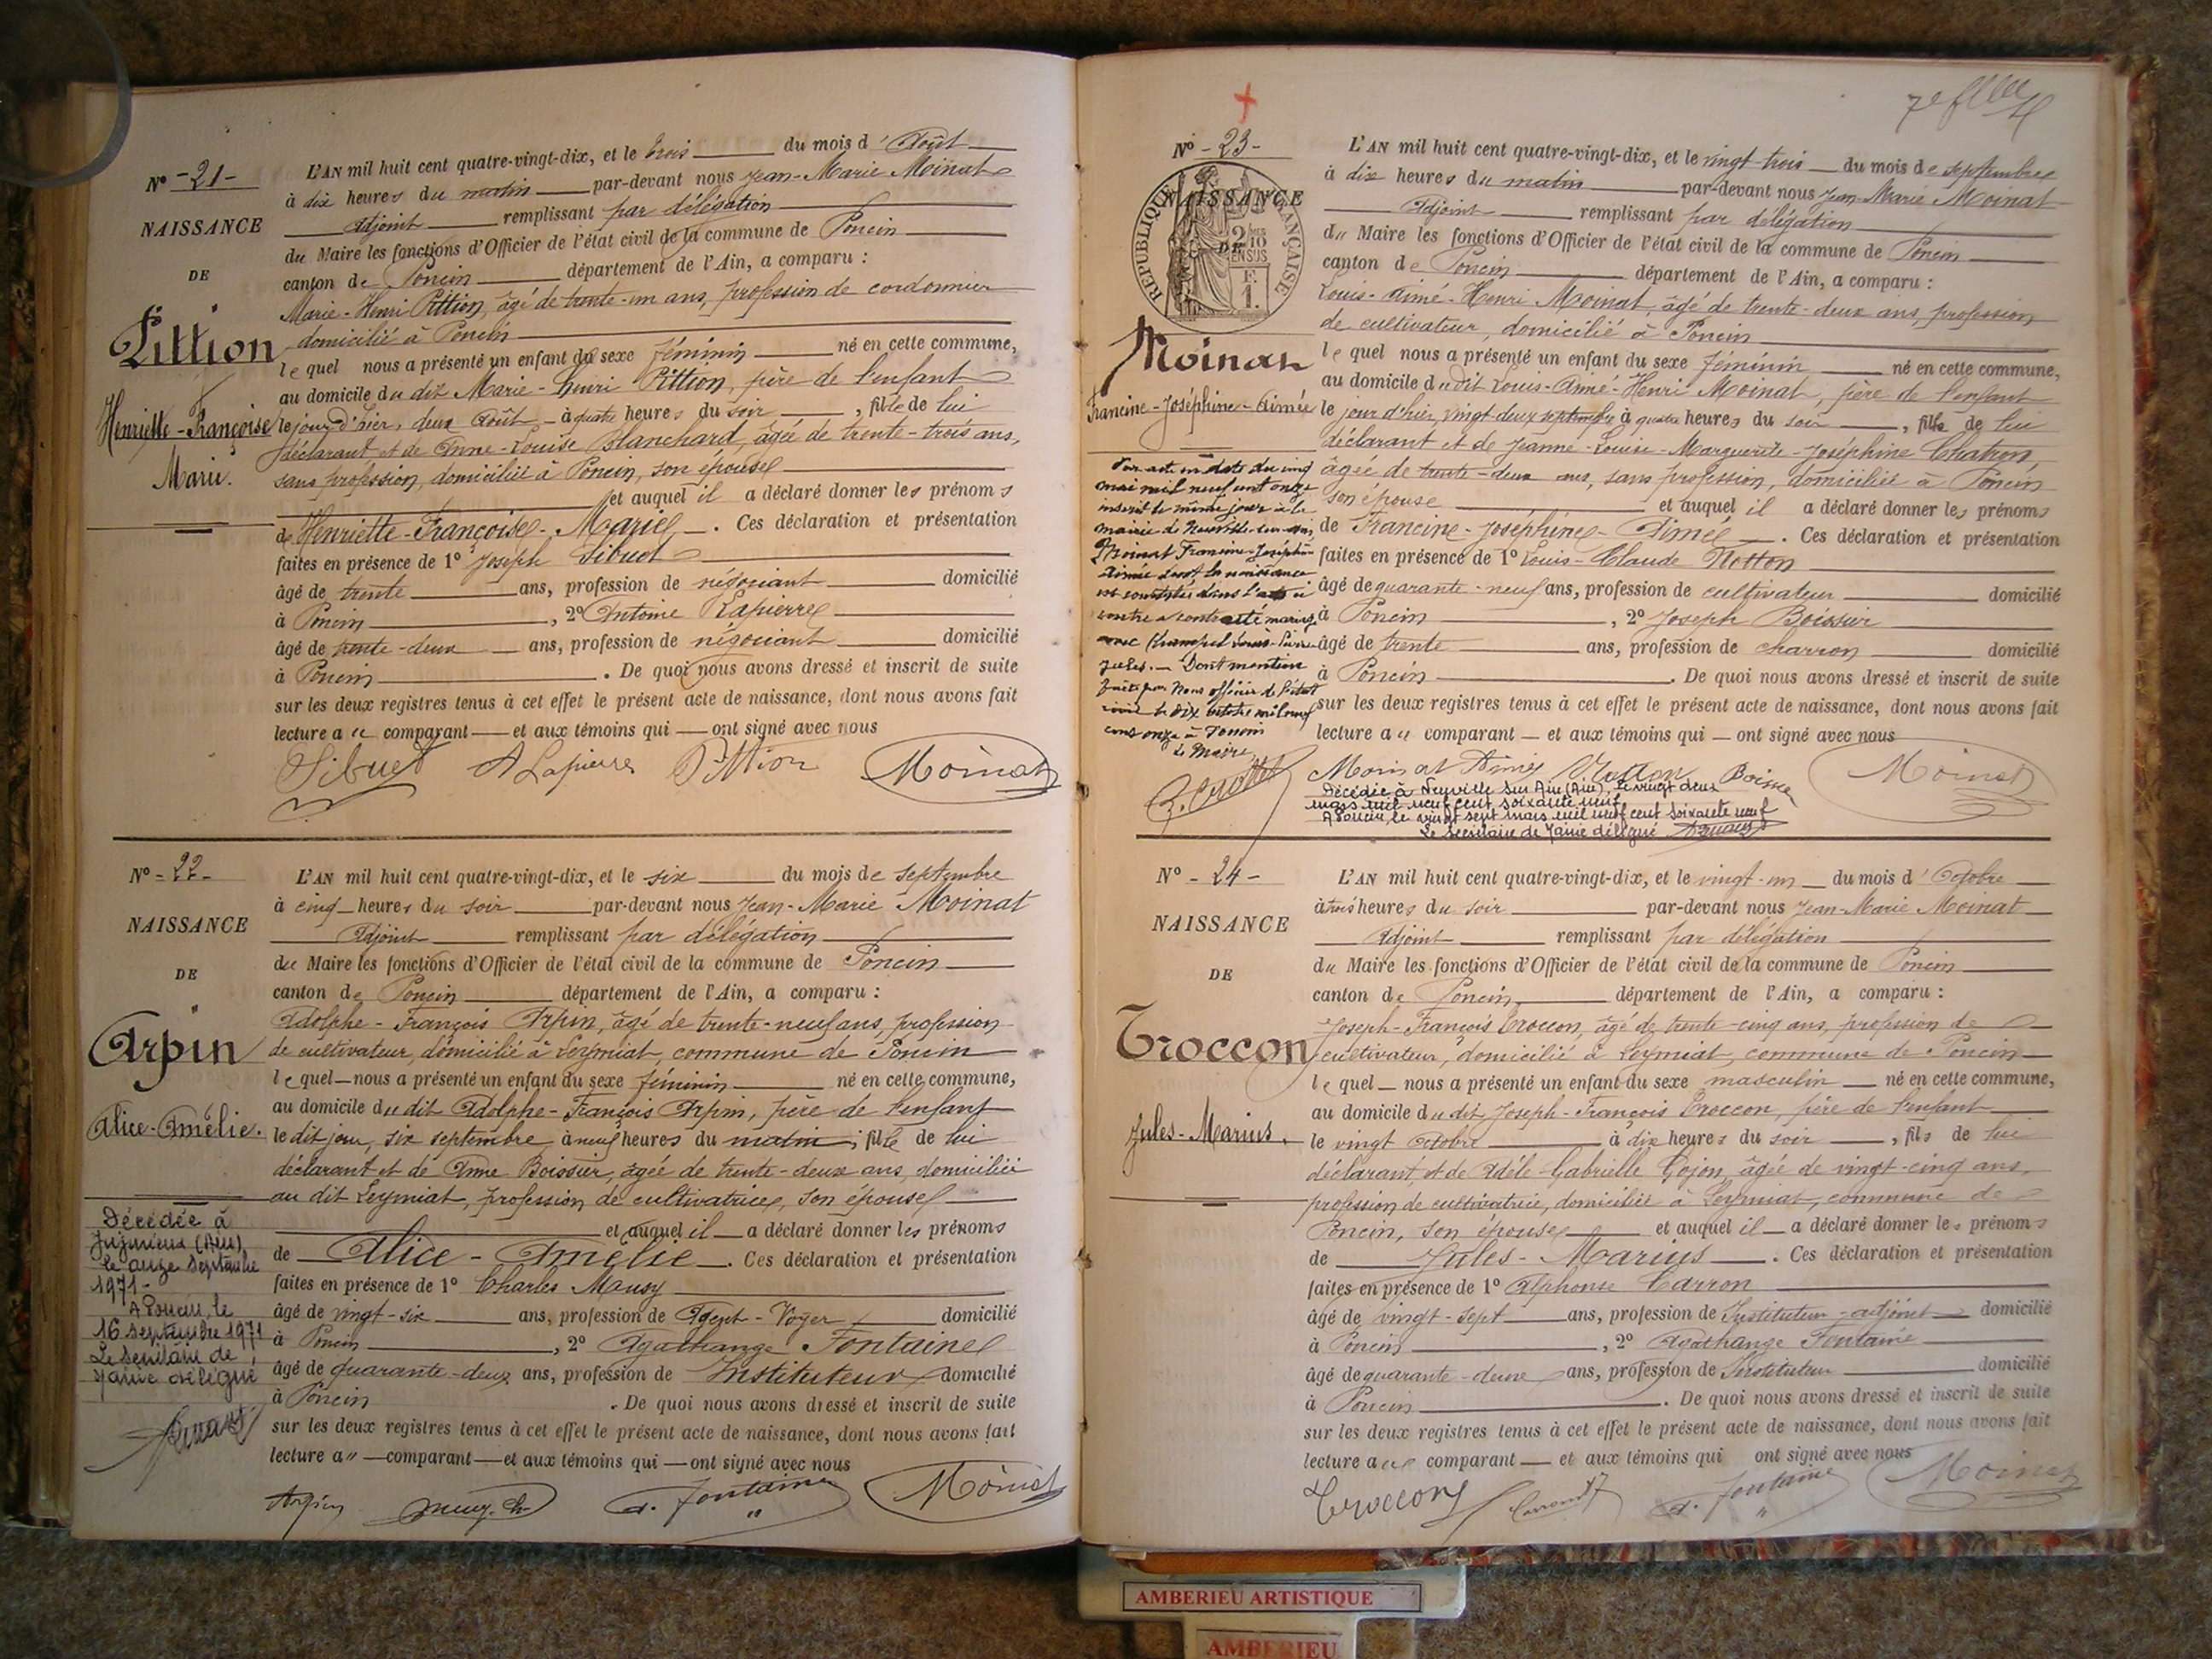 N° -21-
NAISSANCE
DE
Pittion
Henriette-Françoise
Marie.
L'AN mil huit cent quatre-vingt-dix, et le trois du mois d'Août
à dix heures du matin par-devant nous Jean-Marie Moinat
Adjoint remplissant par délégation
du Maire les fonctions d'Officier de l'état civil de la commune de Poncin
canton de Poncin département de l'Ain, a comparu :
Marie-Henri Pittion, âgé de trente-un ans, profession de cordonnier
domicilié à Poncin
lequel nous a présenté un enfant du sexe féminin né en cette commune,
au domicile du dit Marie-Henri Pittion, père de l'enfant
le jour d'hier, deux Août à quatre heures du soir, fille de lui
déclarant et de Anne-Louise Blanchard, âgée de trente-trois ans,
sans profession, domiciliée à Poncin, son épouse
et auquel il a déclaré donner les prénoms
de Henriette-Françoise-Marie. Ces déclaration et présentation
faites en présence de 1° Joseph Sibuet
âgé de trente ans, profession de négociant domicilié
à Poncin, 2° Antoine Lapierre
âgé de trente-deux ans, profession de négociant domicilié
à Poncin. De quoi nous avons dressé et inscrit de suite
sur les deux registres tenus à cet effet le présent acte de naissance, dont nous avons fait
lecture au comparant et aux témoins qui ont signé avec nous
Sibuet A Lapierre Pittion Moinat
N° -22-
NAISSANCE
DE
Arpin
Alice-Amélie.
L'AN mil huit cent quatre-vingt-dix, et le six du mois de septembre
à cinq heures du soir par-devant nous Jean-Marie Moinat
Adjoint remplissant par délégation
du Maire les fonctions d'Officier de l'état civil de la commune de Poncin
canton de Poncin département de l'Ain, a comparu :
Adolphe-François Arpin, âgé de trente-neuf ans, profession
de cultivateur, domicilié à Leymiat, commune de Poncin
lequel nous a présenté un enfant du sexe féminin né en cette commune,
au domicile du dit Adolphe-François Arpin, père de l'enfant
le dit jour, six septembre à neuf heures du matin, fille de lui
déclarant et de Anne Boissier, âgée de trente-deux ans, domiciliée
au dit Leymiat, profession de cultivatrice, son épouse
et auquel il a déclaré donner les prénoms
de Alice-Amélie. Ces déclaration et présentation
faites en présence de 1° Charles
âgé de vingt-six ans, profession de Agent-Voyer domicilié
à Poncin, 2° Agathange Fontaine
âgé de quarante-deux ans, profession de Instituteur domicilié
à Poncin. De quoi nous avons dressé et inscrit de suite
sur les deux registres tenus à cet effet le présent acte de naissance, dont nous avons fait
lecture au comparant et aux témoins qui ont signé avec nous
Arpin A. Fontaine Moinat
Décédée à
Jujurieux (Ain)
le onze septembre
1971
A Poncin, le
16 septembre 1971
Le secrétaire de
Mairie délégué
7e
N° -23-
NAISSANCE
DE
RÉPUBLIQUE FRANÇAISE
2/10
EN SUS
F.
1.
Moinat
Francine-Joséphine-Aimée
L'AN mil huit cent quatre-vingt-dix, et le vingt-trois du mois de septembre
à dix heures du matin par-devant nous Jean-Marie Moinat
Adjoint remplissant par délégation
du Maire les fonctions d'Officier de l'état civil de la commune de Poncin
canton de Poncin département de l'Ain, a comparu :
Louis-Aimé-Henri Moinat, âgé de trente-deux ans, profession
de cultivateur, domicilié à Poncin
lequel nous a présenté un enfant du sexe féminin né en cette commune,
au domicile du dit Louis-Aimé-Henri Moinat, père de l'enfant
le jour d'hier, vingt deux septembre à quatre heures du soir, fille de lui
déclarant et de Jeanne-Louise-Marguerite-Joséphine Chatron,
âgée de trente-deux ans, sans profession, domiciliée à Poncin
son épouse et auquel il a déclaré donner les prénoms
de Francine-Joséphine-Aimée. Ces déclaration et présentation
faites en présence de 1° Louis-Claude
âgé de quarante-neuf ans, profession de cultivateur domicilié
à Poncin, 2° Joseph Boissier
âgé de trente ans, profession de charron domicilié
à Poncin. De quoi nous avons dressé et inscrit de suite
sur les deux registres tenus à cet effet le présent acte de naissance, dont nous avons fait
lecture au comparant et aux témoins qui ont signé avec nous
Moinat Aimé Moinat
Par acte en date du cinq
mai mil neuf cent onze
inscrit le même jour à la
mairie de Neuville-sur-Ain,
Moinat Francine-Joséphine
Aimée dont la naissance
est constatée dans l'acte ci
contre a contracté mariage
avec Louis-Pierre
Jules. - Dont mention
faite par Nous officier de l'état
civil le dix octobre mil neuf
cent onze à Poncin
Le Maire
Décédée à Neuville sur Ain (Ain), le vingt deux
mars mil neuf cent soixante neuf
A Poncin, le vingt sept mars mil neuf cent soixante neuf
Le secrétaire de Mairie délégué
N° -24-
NAISSANCE
DE
Troccon
Jules-Marius.
L'AN mil huit cent quatre-vingt-dix, et le vingt-un du mois d'Octobre
à trois heures du soir par-devant nous Jean-Marie Moinat
Adjoint remplissant par délégation
du Maire les fonctions d'Officier de l'état civil de la commune de Poncin
canton de Poncin, département de l'Ain, a comparu :
Joseph-François Troccon, âgé de trente-cinq ans, profession de
cultivateur, domicilié à Leymiat, commune de Poncin
lequel nous a présenté un enfant du sexe masculin né en cette commune,
au domicile du dit Joseph-François Troccon, père de l'enfant
le vingt Octobre à dix heures du soir, fils de lui
déclarant, et de Adèle-Gabrielle Gojon, âgée de vingt-cinq ans,
profession de cultivatrice, domiciliée à Leymiat, commune de
Poncin, son épouse et auquel il a déclaré donner les prénoms
de Jules-Marius. Ces déclaration et présentation
faites en présence de 1° Alphonse Carron
âgé de vingt-sept ans, profession de Instituteur-adjoint domicilié
à Poncin, 2° Agathange Fontaine
âgé de quarante-deux ans, profession de Instituteur domicilié
à Poncin. De quoi nous avons dressé et inscrit de suite
sur les deux registres tenus à cet effet le présent acte de naissance, dont nous avons fait
lecture au comparant et aux témoins qui ont signé avec nous
Troccon A. Fontaine Moinat
AMBERIEU ARTISTIQUE
AMBERIEU